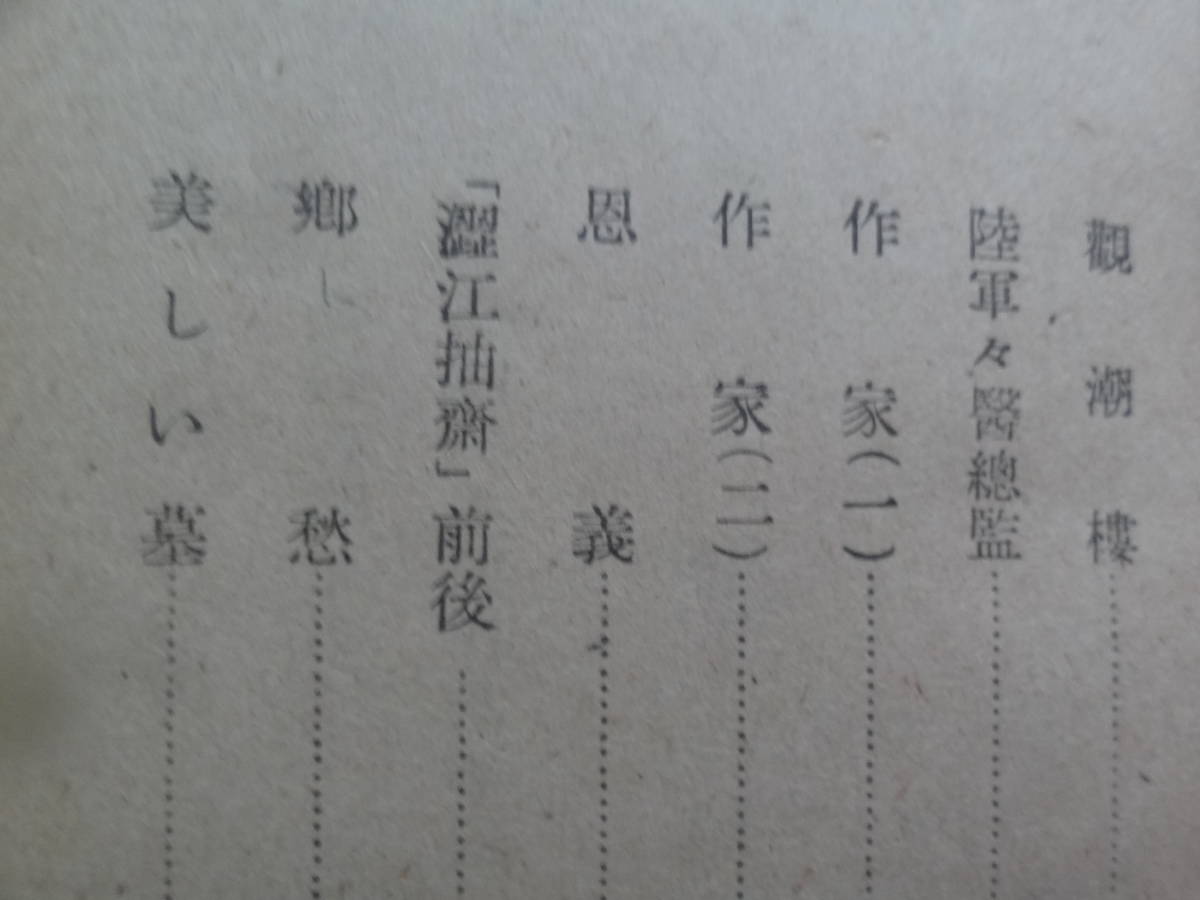 觀潮樓
陸軍々醫總監
作家(一)
作家(二)
恩義
「澀江抽齋」前後
鄕愁
美しい墓